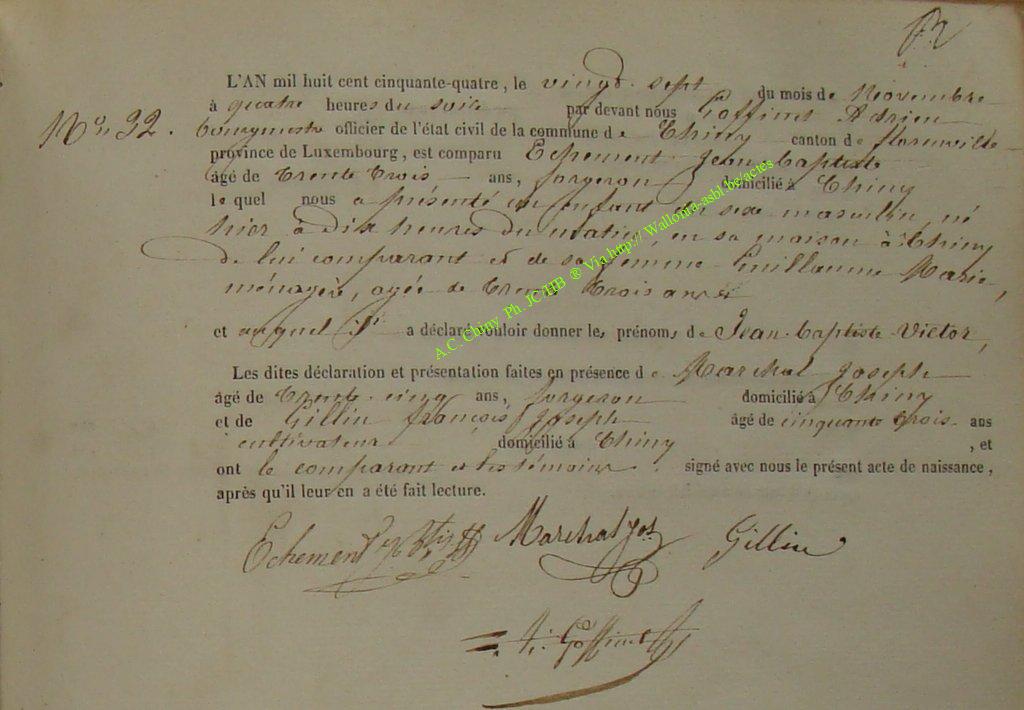 N° 32.
L'AN mil huit cent cinquante-quatre, le vingt sept du mois de Novembre
à quatre heures du soir par devant nous Goffinet Adrien
bourgmestre officier de l'état civil de la commune de Chiny canton de florenville
province de Luxembourg, est comparu Echement Jean baptiste
âgé de trente trois ans, forgeron domicilié à Chiny
lequel nous a présenté un enfant du sexe masculin, né
hier à dix heures du matin, en sa maison à Chiny
de lui comparant et de sa femme Guillaume Marie,
ménagère, agée de trente trois ans
et auquel il a déclaré vouloir donner les prénoms de Jean-baptiste Victor,
Les dites déclaration et présentation faites en présence de Marchal Joseph
âgé de trente-cinq ans, forgeron domicilié à Chiny
et de Gillin françois Joseph âgé de cinquante trois ans
cultivateur domicilié à Chiny , et
ont le comparant et les témoins signé avec nous le présent acte de naissance,
après qu'il leur en a été fait lecture.
Echement Marchal Jos Gillin
A. Goffinet
A.C. Chiny Ph. JC HB ® Via http:// Wallonia-asbl.be/actes